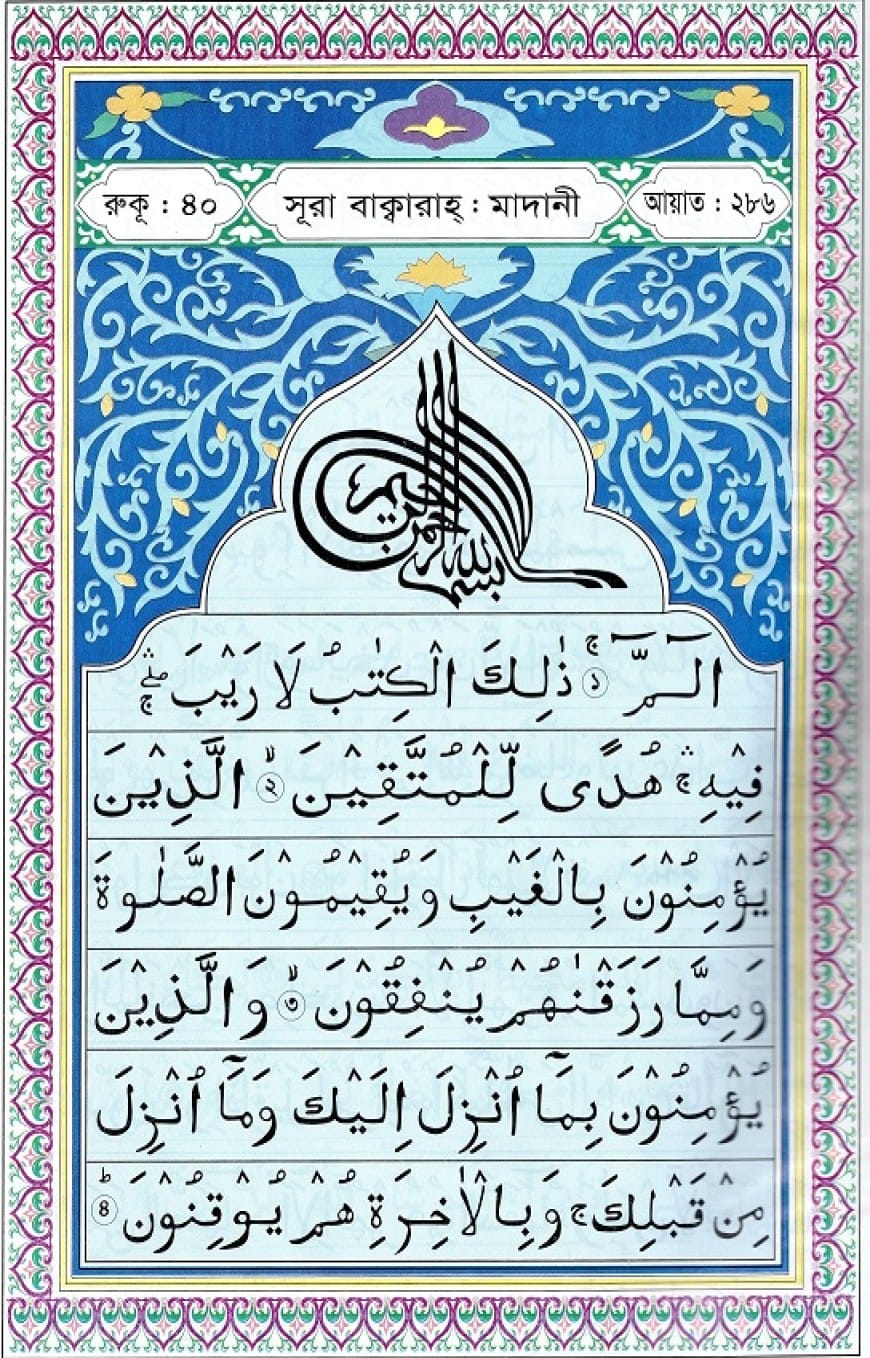 রুকূ : ৪০ সূরা বাক্বারাহ্ : মাদানী আয়াত : ২৮৬
بسم الله الرحمن الرحيم
الٓـمّٓ ۚ ১ ذٰلِكَ الْكِتٰبُ لَا رَيْبَ ۛۖۚ
فِيْهِ ۛۚ هُدًى لِّلْمُتَّقِيْنَ ۙ ২ الَّذِيْنَ
يُؤْمِنُوْنَ بِالْغَيْبِ وَيُقِيْمُوْنَ الصَّلٰوةَ
وَمِمَّا رَزَقْنٰهُمْ يُنْفِقُوْنَ ۙ ৩ وَالَّذِيْنَ
يُؤْمِنُوْنَ بِمَآ اُنْزِلَ اِلَيْكَ وَمَآ اُنْزِلَ
مِنْ قَبْلِكَ ۚ وَبِالْاٰخِرَةِ هُمْ يُوْقِنُوْنَ ؕ ৪